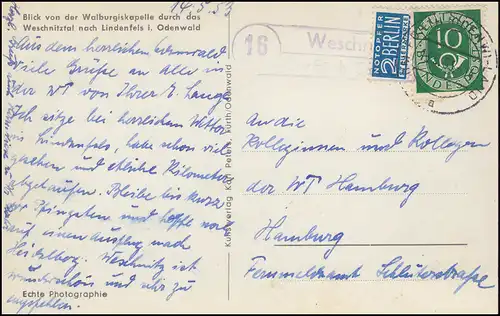 14.5.53
Blick von der Walburgiskapelle durch das
Weschnitztal nach Lindenfels i. Odenwald
Aus dem herrlichen Odenwald
Viele Grüße an alle in
der WT von Ihrer J. Lange
Ich sitze bei herrlichem Wetter
in Lindenfels, habe schon viel
gesehen und etliche Kilometer
abgelaufen. Bleibe bis kurz
vor Pfingsten und hoffe noch
auf einen Ausflug nach
Heidelbg. Weschnitz ist
wunderschön und nur zu
empfehlen.
Echte Photographie
Kunstverlag Karl Peters, Fürth/Odenwald
16
Weschnitz
NOTOPFER
2 BERLIN
STEUERMARKE
10
DEUTSCHE BUNDESPOST
a
An die
Kolleginnen und Kollegen
der WT Hamburg
Hamburg
Fernmeldeamt Schlüterstraße